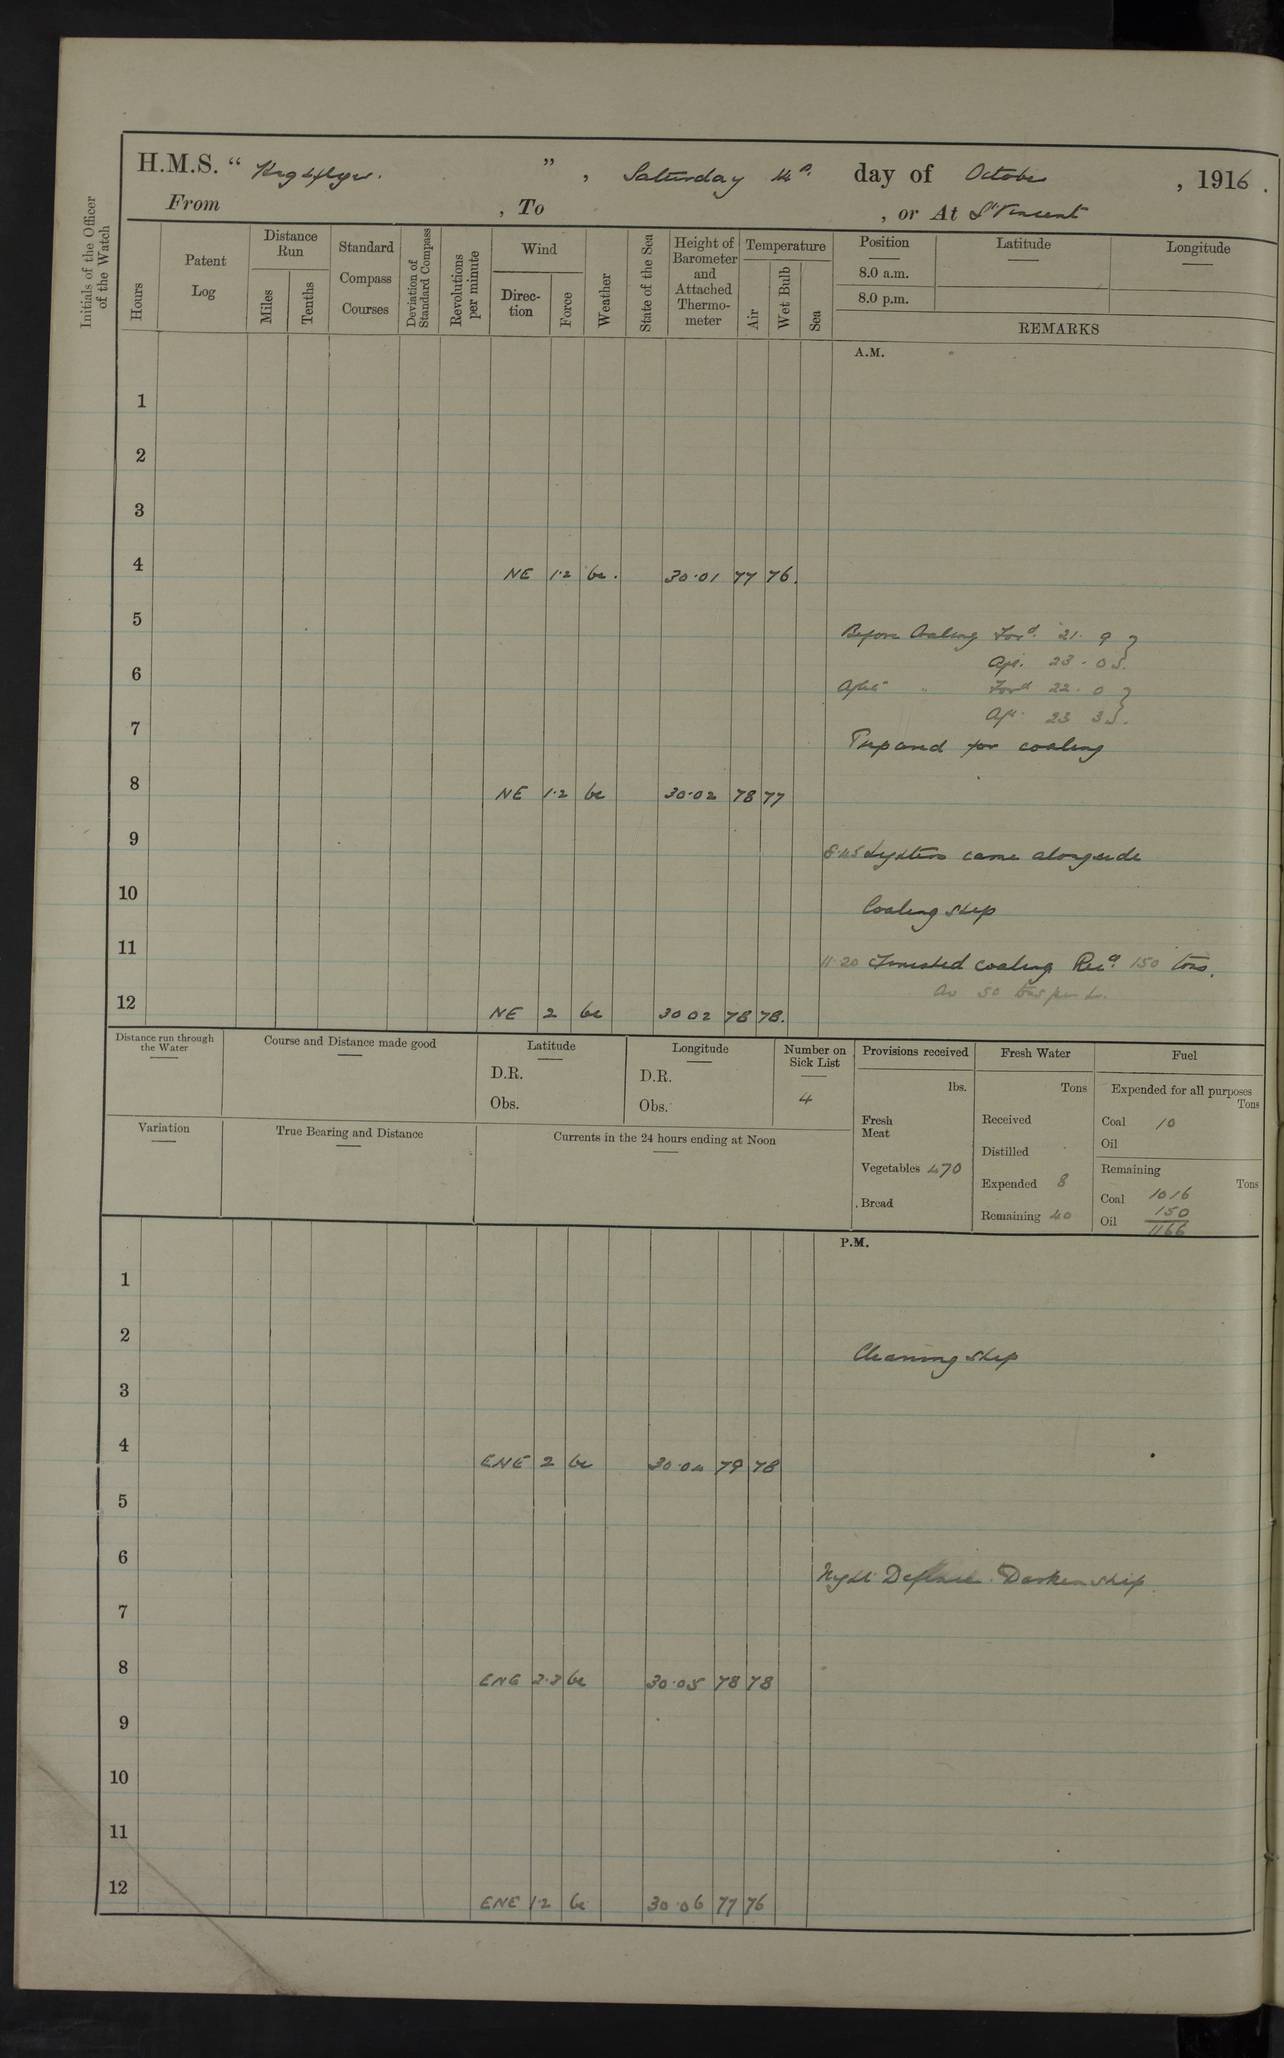 H.M.S. “ Highflyer. ” , Saturday 14th day of October , 1916 .
From , To , or At St Vincent
Initials of the Officer of the Watch
Hours
Patent Log
Distance Run
Miles
Tenths
Standard Compass Courses
Deviation of Standard Compass
Revolutions per minute
Wind
Direction
Force
Weather
State of the Sea
Height of Barometer and Attached Thermometer
Temperature
Air
Wet Bulb
Sea
Position Latitude Longitude
8.0 a.m.
8.0 p.m.
REMARKS
A.M.
1
2
3
4 NE 1.2 bc. 30.01 77 76.
5
Before Coaling Ford. 21. 9 }
Aft. 23. 0 }
6
After " Ford 22. 0 }
Aft 23 3 }
7
Prepared for coaling
8 NE 1.2 bc 30.02 78 77
9
8.45 Lighters came alongside
10
Coaling ship
11
11.20 Finished coaling Recd. 150 tons.
Av 50 tons per hr.
12 NE 2 bc 30 02 78 78.
Distance run through the Water
Course and Distance made good
Latitude
D.R.
Obs.
Longitude
D.R.
Obs.
Number on Sick List
4
Provisions received
lbs.
Fresh Meat
Vegetables 470
Bread
Fresh Water
Tons
Received
Distilled
Expended 8
Remaining 40
Fuel
Expended for all purposes
Tons
Coal 10
Oil
Remaining
Tons
Coal 1016
150
Oil 1166
Variation
True Bearing and Distance
Currents in the 24 hours ending at Noon
P.M.
1
2
Cleaning ship
3
4 ENE 2 bc 30.04 79 78
5
6
Night Defence. Darken ship.
7
8 ENE 2.3 bc 30.05 78 78
9
10
11
12 ENE 1.2 bc 30.06 77 76